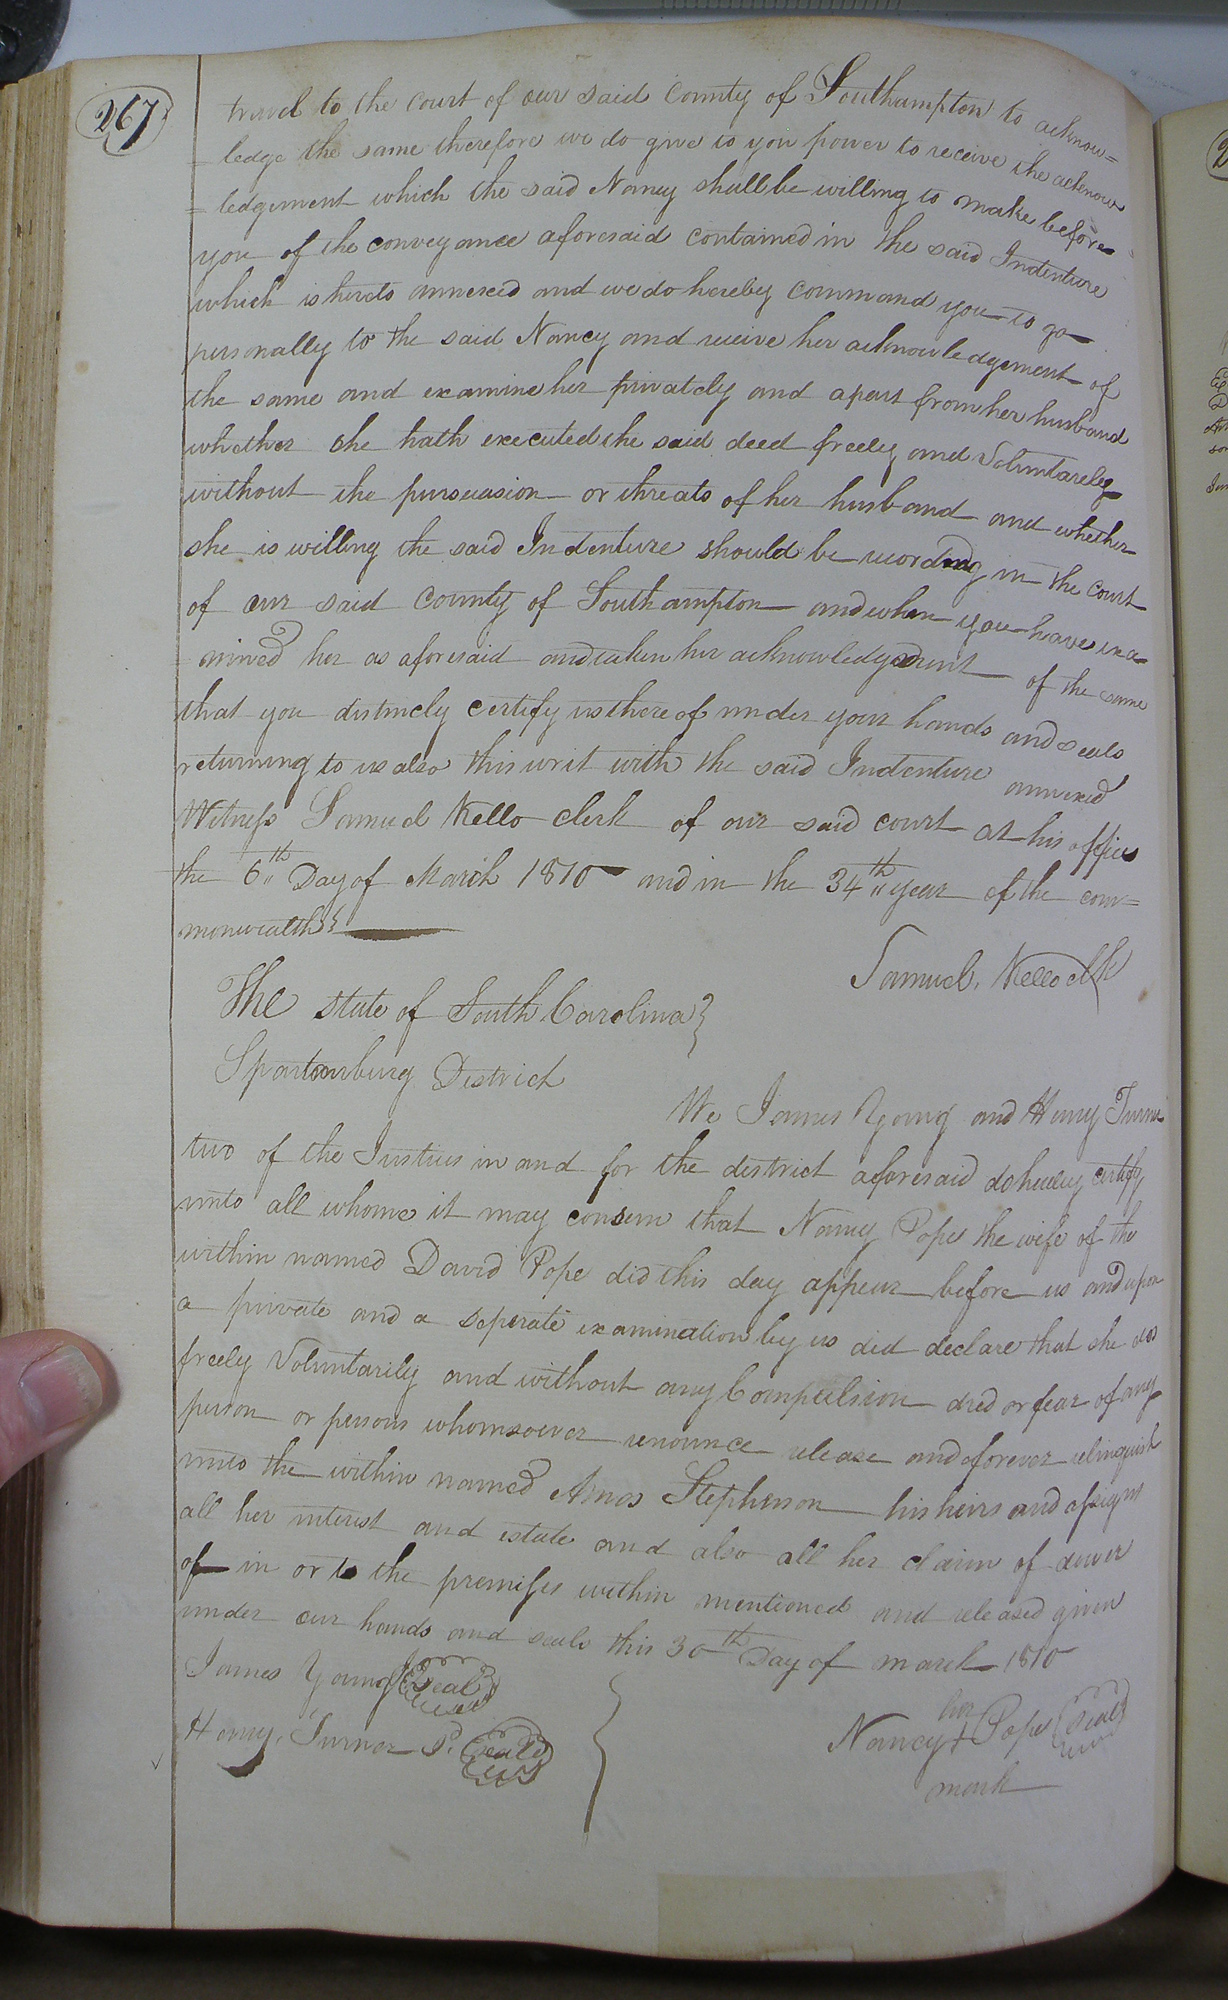 267
travel to the court of our said County of Southampton to acknow=
=ledge the same therefore we do give to you power to receive the acknow
=ledgement which the said Nancy shall be willing to make before
you of the conveyance aforesaid contained in the said Indenture
which is hereto annexed and we do hereby command you to go
personally to the said Nancy and receive her acknowledgement of
the same and examine her privately and apart from her husband
whether she hath executed the said deed freely and Voluntarely
without the pursuasion or threats of her husband and whether
she is willing the said Indenture should be recording in the Court
of our said County of Southampton and when you have exa=
=mined her as aforesaid and taken her acknowledgement of the same
that you distincly certify us thereof under your hands and seals
returning to us also this writ with the said Indenture annexed
Witness Samuel Kello clerk of our said court at his office
the 6th Day of March 1810 and in the 34th year of the com=
monwealth
Samuel, Kello clk
The state of South Carolina }
Spartanburg District
We James Young and Henry Turner
two of the Justices in and for the district aforesaid do hereby certify
unto all whome it may consern that Nancy Pope the wife of the
within named David Pope did this day appear before us and upon
a private and a seperate examination by us did declare that she dos
freely Voluntarily and without any Compulsion dred or fear of any
person or persons whomsoever renounce release and forever relinquish
unto the within named Amos Stephenson his heirs and assigns
all her interest and estate and also all her claim of dower
of in or to the premises within mentioned and released given
under our hands and seals this 30th Day of march 1810
James Young Seal
her
Nancy + Pope Seal
Henry, Turner Seal
mark